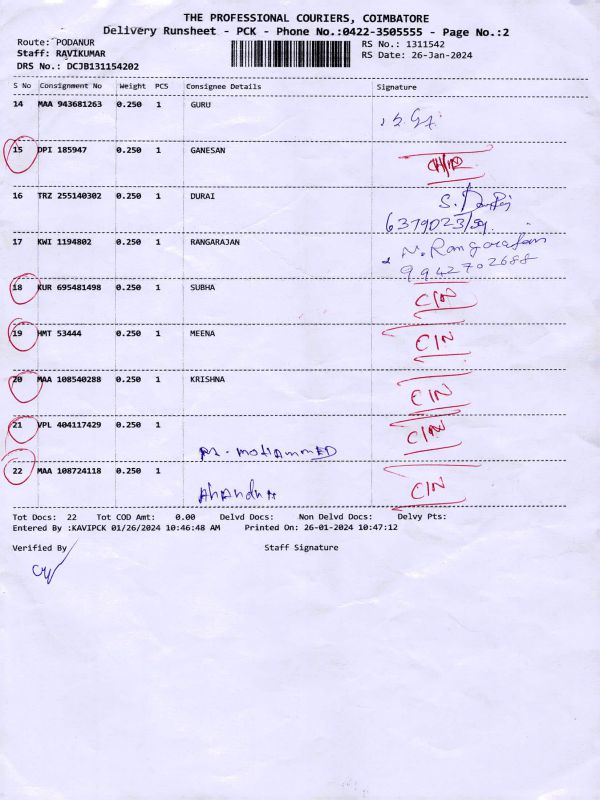 THE PROFESSIONAL COURIERS, COIMBATORE
Delivery Runsheet - PCK - Phone No.:0422-3505555 - Page No.:2
Route: PODANUR RS No.: 1311542
Staff: RAVIKUMAR RS Date: 26-Jan-2024
DRS No.: DCJB131154202
S No Consignment No Weight PCS Consignee Details Signature
14 MAA 943681263 0.250 1 GURU
15 DPI 185947 0.250 1 GANESAN
16 TRZ 255140302 0.250 1 DURAI
17 KWI 1194802 0.250 1 RANGARAJAN N. Rangarajan
9942702688
18 KUR 695481498 0.250 1 SUBHA CIN
19 HMT 53444 0.250 1 MEENA CIN
20 MAA 108540288 0.250 1 KRISHNA CIN
21 VPL 404117429 0.250 1 CIN
MOHAMMED
22 MAA 108724118 0.250 1 CIN
Tot Docs: 22 Tot COD Amt: 0.00 Delvd Docs: Non Delvd Docs: Delvy Pts:
Entered By :KAVIPCK 01/26/2024 10:46:48 AM Printed On: 26-01-2024 10:47:12
Verified By Staff Signature